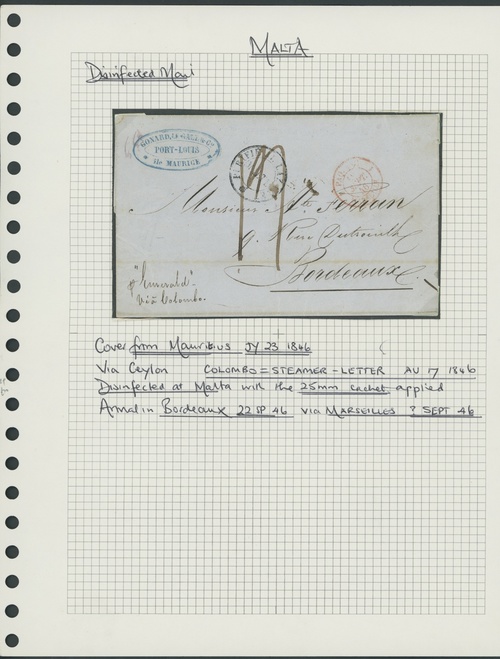 MALTA
Disinfected Mail
PORT-LOUIS
Ile MAURICE
Monsieur
9. Rue
Bordeaux
p "Emerald"
via Colombo.
Cover from Mauritius JY 23 1846
Via Ceylon COLOMBO = STEAMER - LETTER AU 17 1846
Disinfected at Malta with the 25mm cachet applied
Arrival in Bordeaux 22 SP 46 via MARSEILLES ? SEPT 46